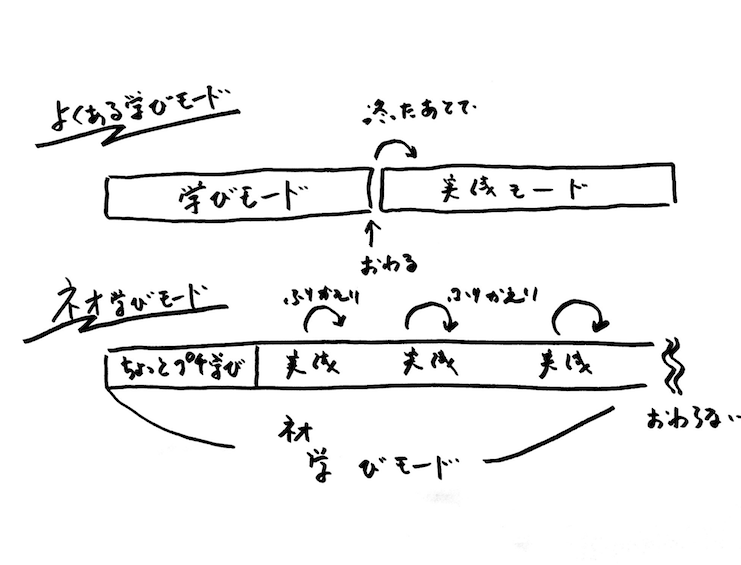 よくある学びモード
終ったあとで
学びモード
実践モード
おわる
ネオ学びモード
ふりかえり
ふりかえり
ちょっとプチ学び
実践
実践
実践
おわらない
ネオ
学びモード